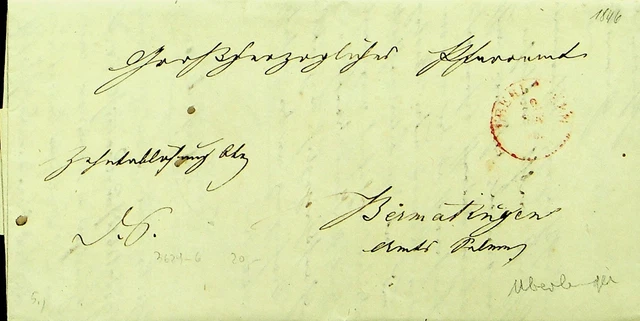 1846
Großherzogliches Pfarramt
UEBERL
Zehntablösung btr
D. S.
Bermatingen
Amts Salem
2621-6 20.-
Uberlingen
5.)